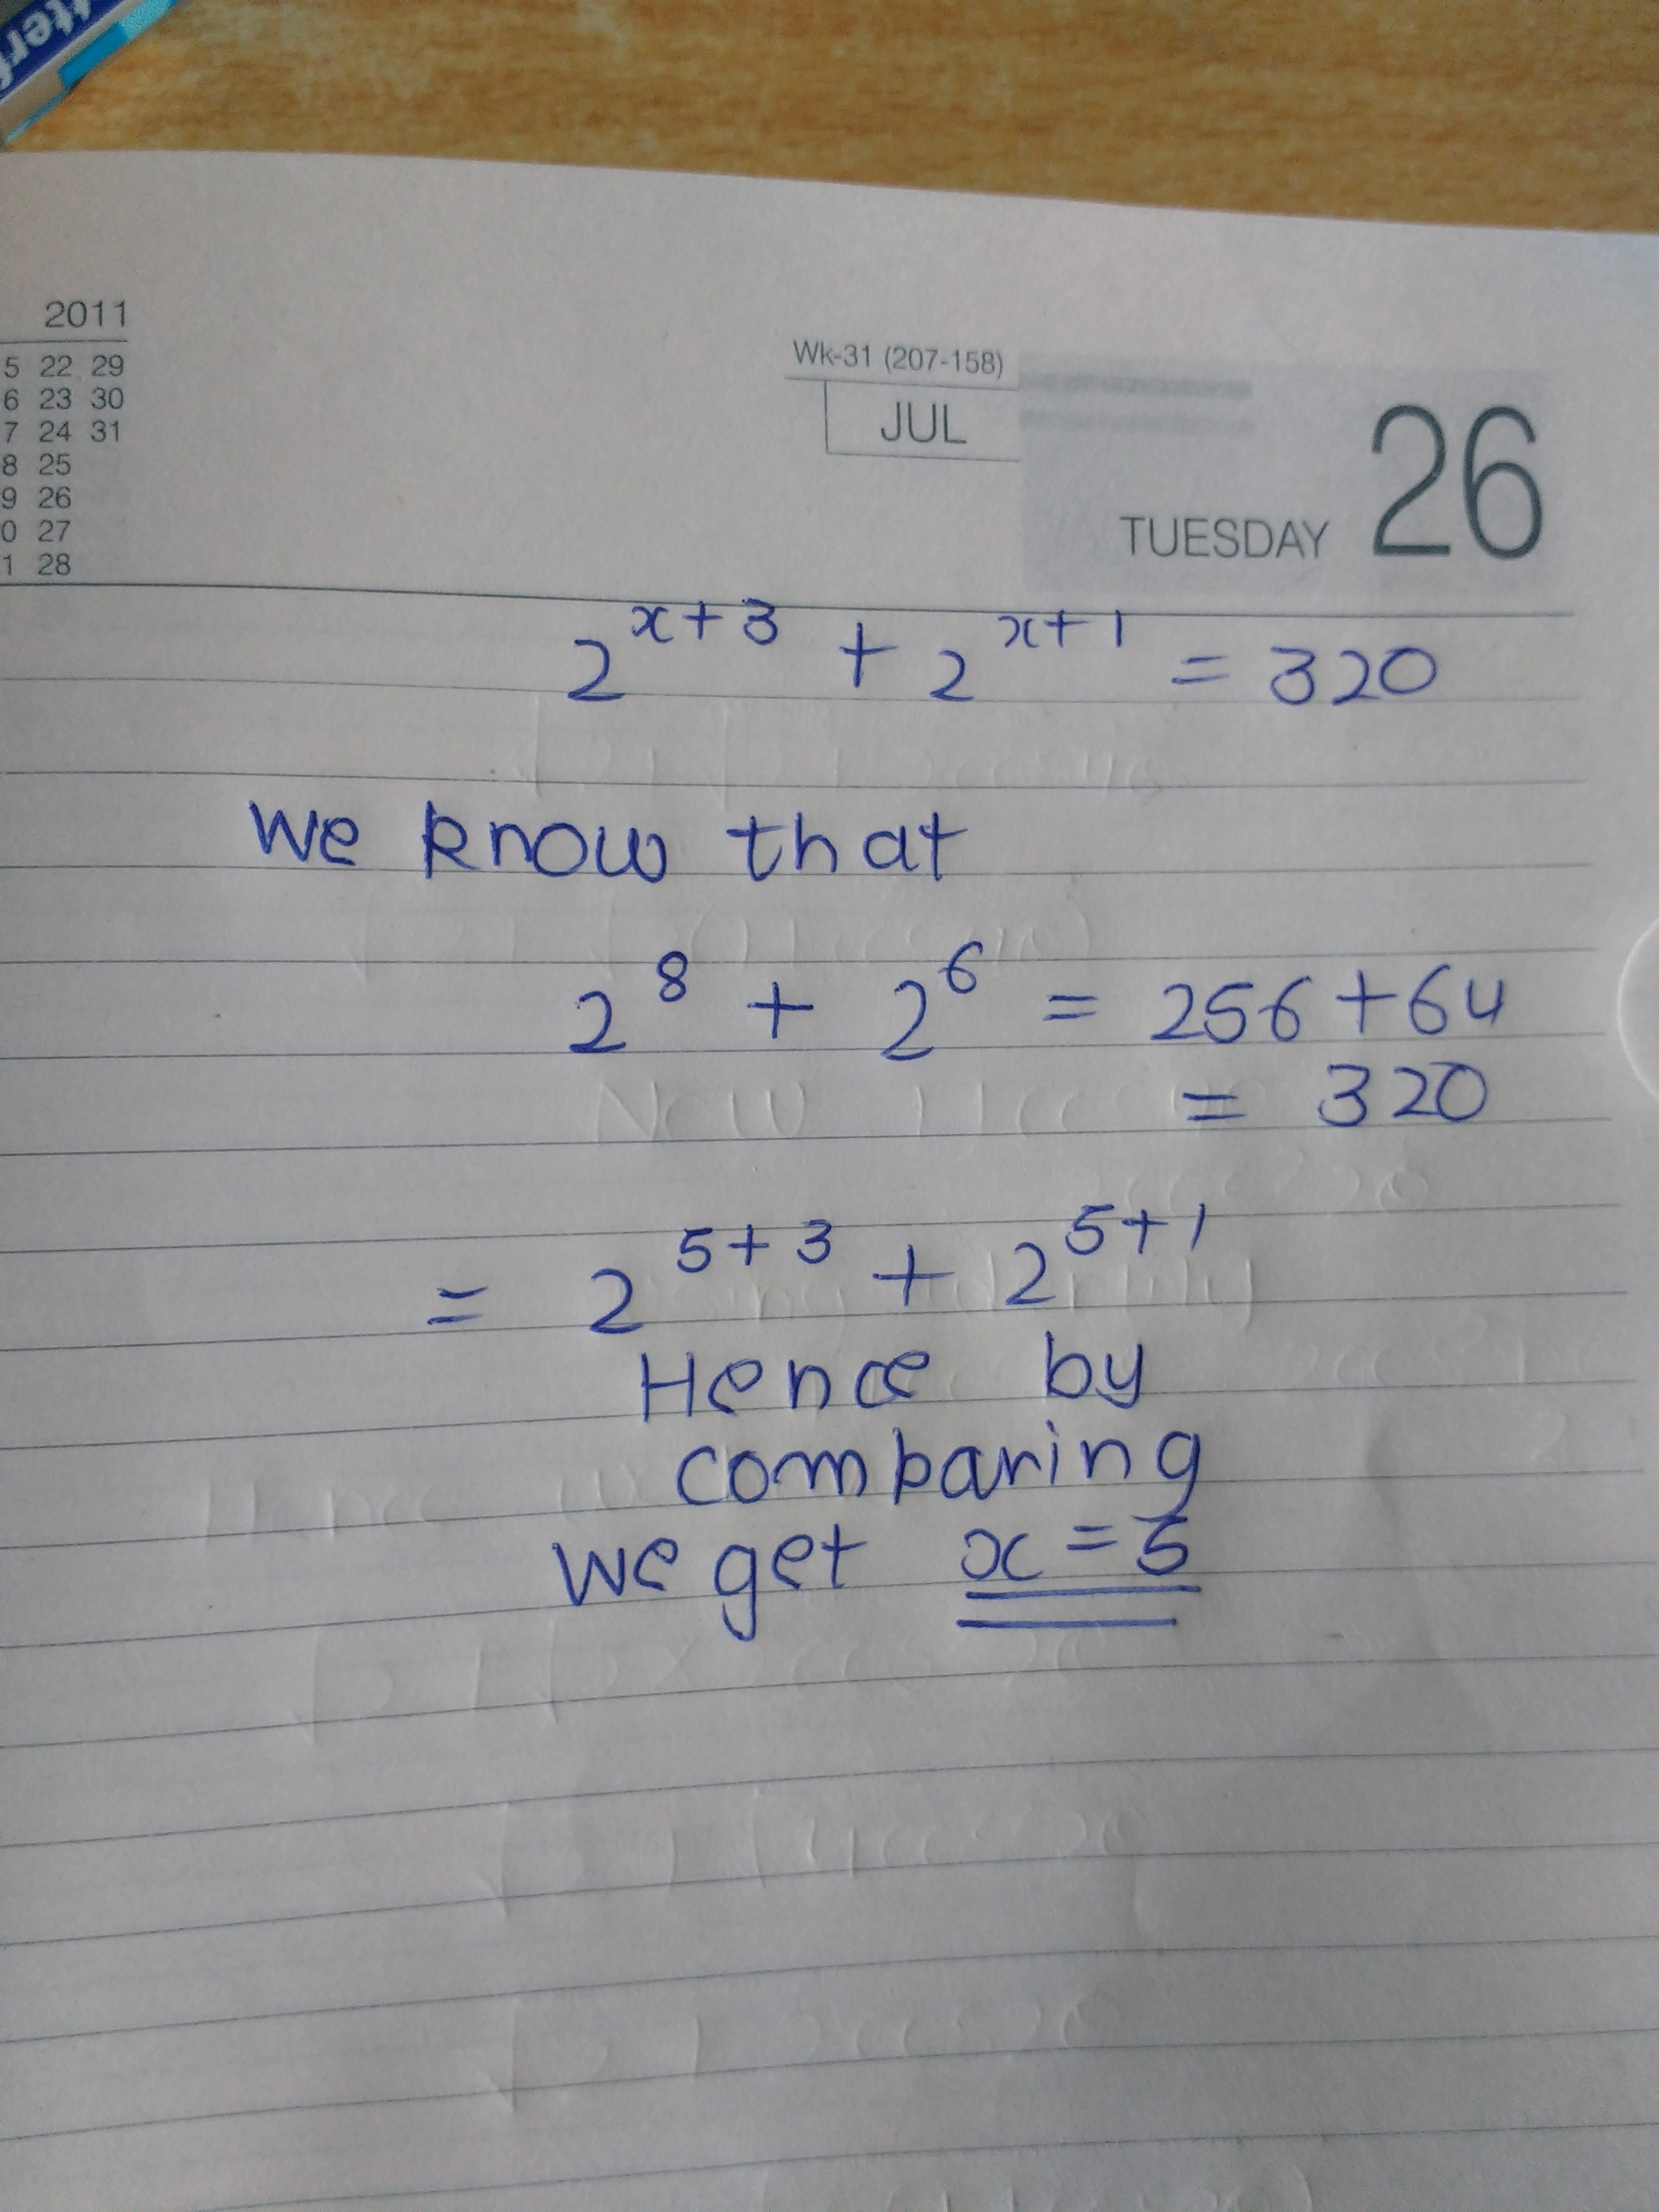 2011
5 22 29
6 23 30
7 24 31
8 25
9 26
0 27
1 28
Wk-31 (207-158)
JUL
TUESDAY 26
2^{x+3} + 2^{x+1} = 320
We know that
2^8 + 2^6 = 256 + 64
= 320
= 2^{5+3} + 2^{5+1}
Hence by
comparing
we get x = 5